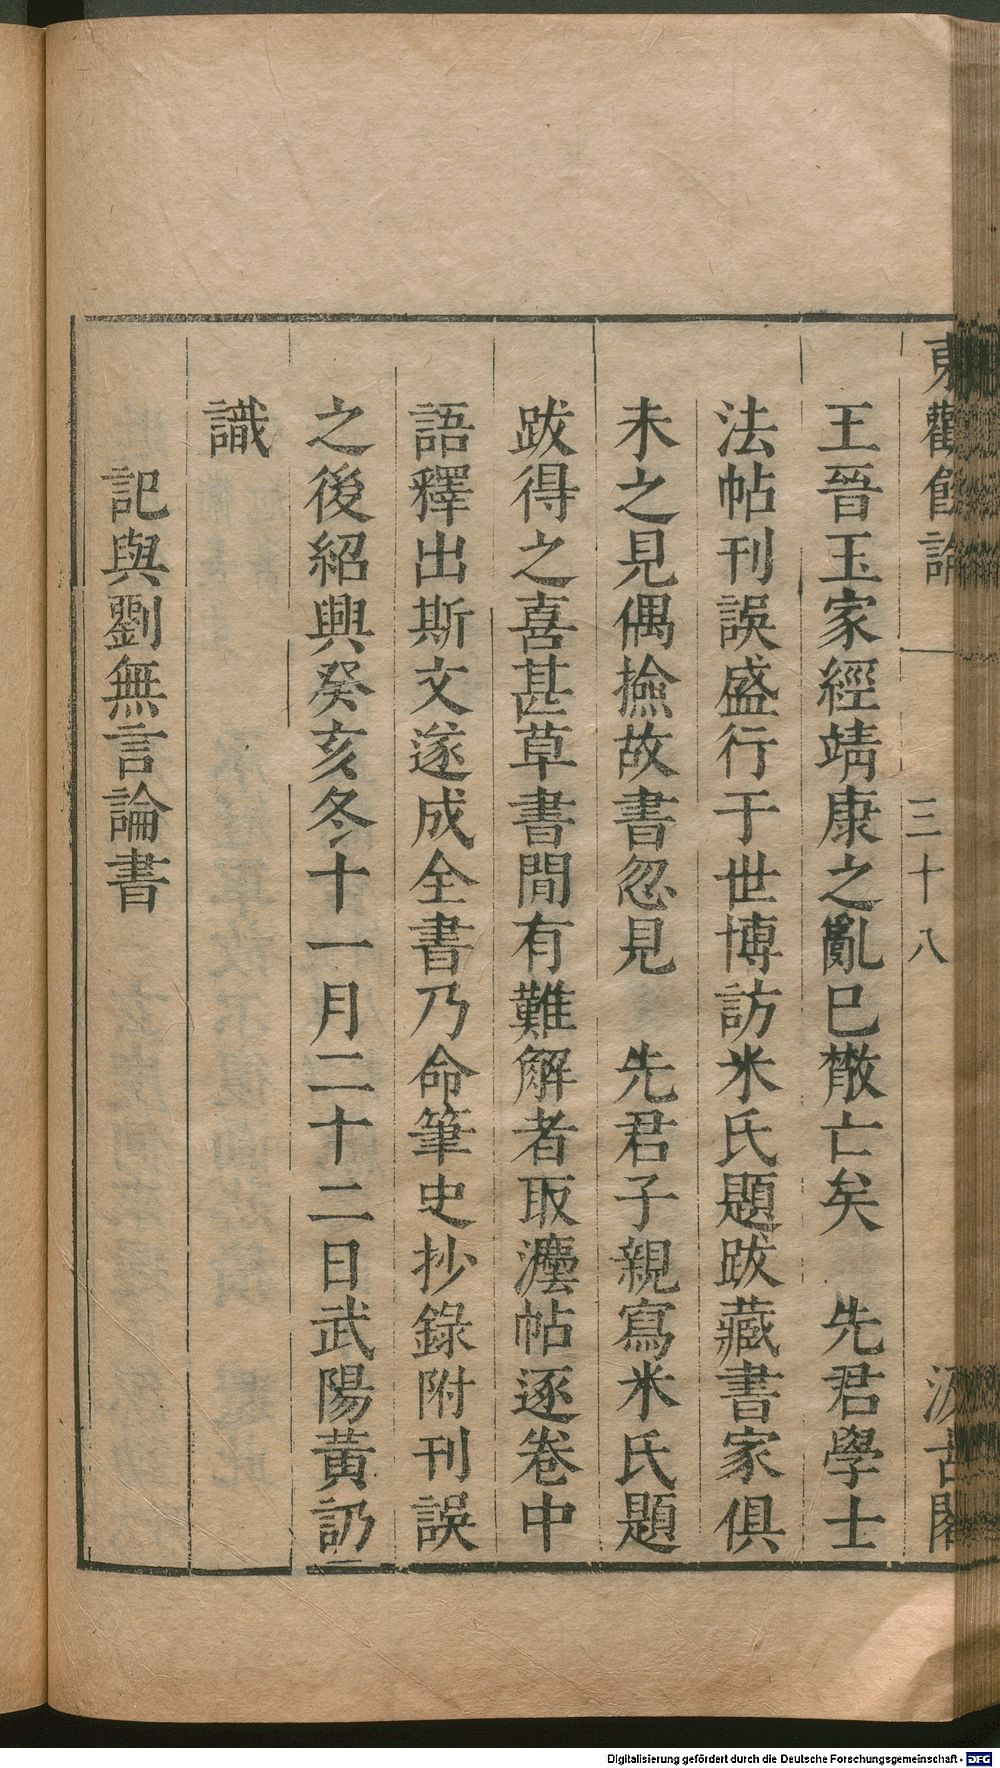 東觀餘論
三十八
汲古閣
王晉玉家經靖康之亂已散亡矣　先君學士
法帖刊誤盛行于世博訪米氏題跋藏書家俱
未之見偶撿故書忽見　先君子親寫米氏題
跋得之喜甚草書間有難解者取灋帖逐卷中
語釋出斯文遂成全書乃命筆史抄錄附刊誤
之後紹興癸亥冬十一月二十二日武陽黃䚮
識
記與劉無言論書
Digitalisierung gefördert durch die Deutsche Forschungsgemeinschaft - DFG